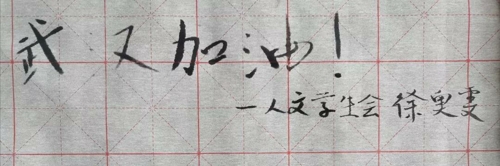 武又加油！
一人文学生会 徐臾雯